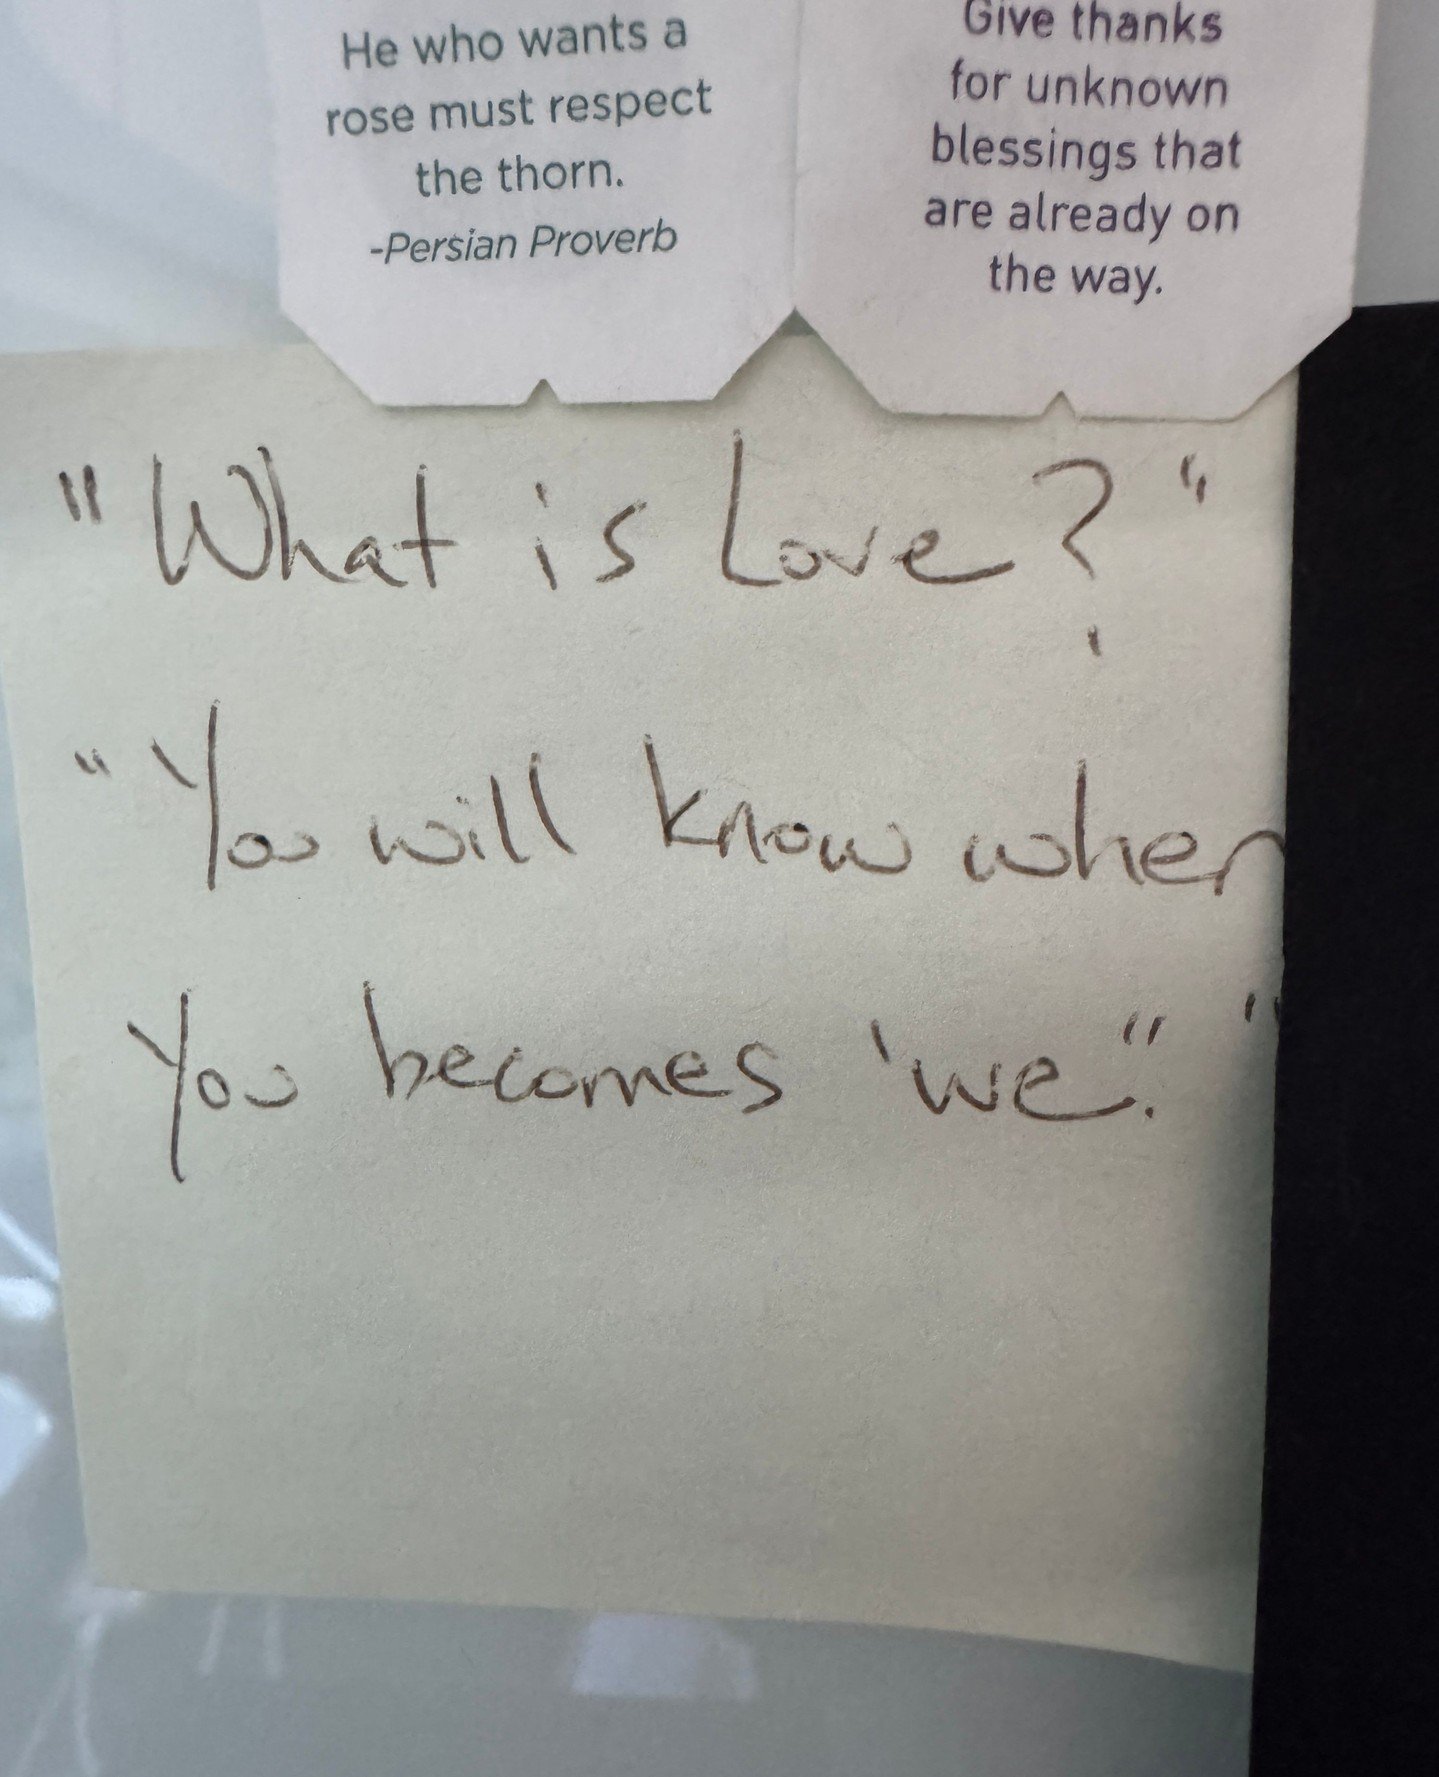 He who wants a
rose must respect
the thorn.
-Persian Proverb
Give thanks
for unknown
blessings that
are already on
the way.
"What is Love?"
"You will know when
You becomes 'we'." "